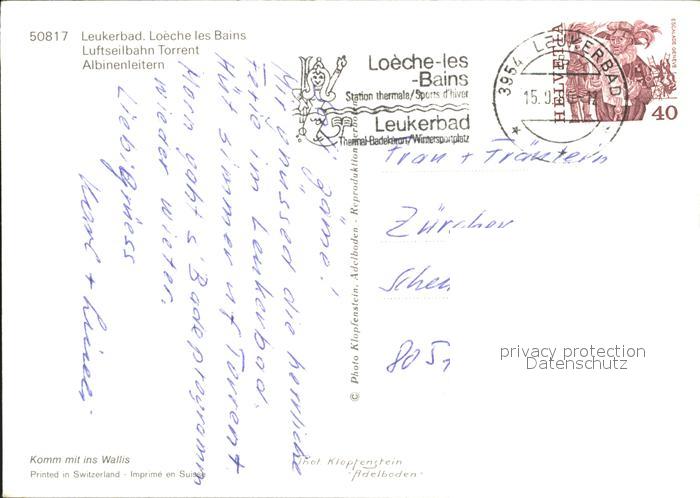 50817 Leukerbad. Loèche les Bains
Luftseilbahn Torrent
Albinenleitern
Loèche-les
-Bains
Station thermale/Sports d'hiver
Leukerbad
Thermal-Badekurort/Wintersportplatz
3954 LEUKERBAD
15.9.
HELVETIA
ESCALADE GENÈVE
40
zäme!
Mir gnussed die herrliche
Ferie im Leukerbad.
Hüt simmer uf Torrent
Morn gaht s' Badeprogramm
wieder wieter.
Liebi Grüess
+
© Photo Klopfenstein, Adelboden - Reproduktion verboten
Frau + Fräulein
Zürcher
805
privacy protection
Datenschutz
Komm mit ins Wallis
Printed in Switzerland - Imprimé en Suisse
Photo Klopfenstein
"Adelboden"